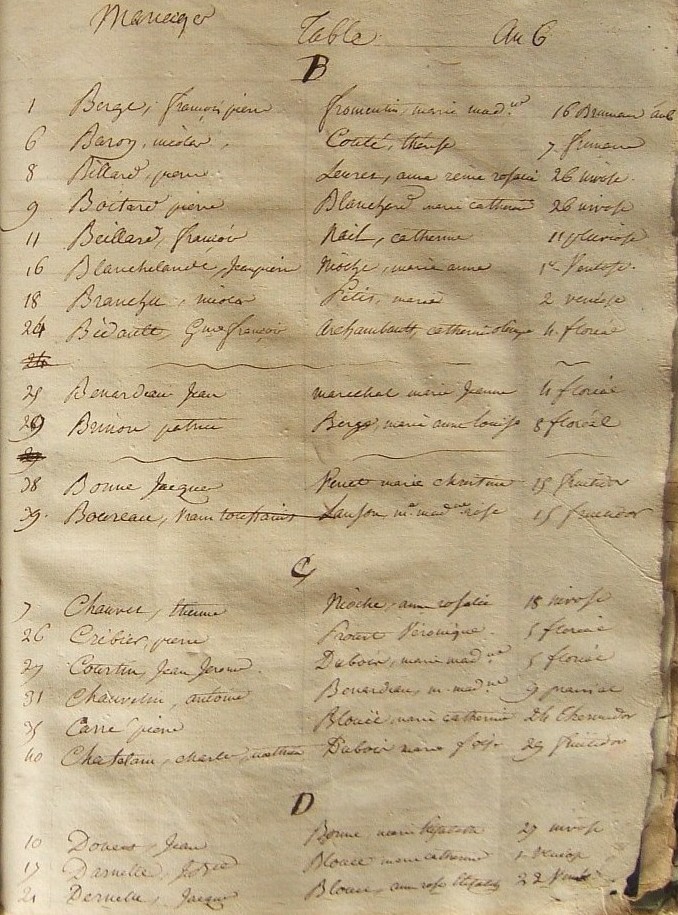 Mariages Table An 6
B
1 Berge, françois pierre fromentin, marie mad.ne 16 Brumaire an 6
6 Baron, nicolas, Couté, thérese 7 frimaire
8 Billard, pierre anne reine rosalie 26 nivose.
9 Boitard pierre Blanchard marie catherine 26 nivose
11 Beillard, françois Rail, catherine 11 pluviose
16 Blanchelande, Jean pierre Nioche, marie anne 1er Ventose.
18 Branchu, nicolas Petit, marie 2 ventose
24 Bédault, Gme françois Archambault, catherine 4 floreal
24
25 Benardeau Jean marechal marie Jeanne 4 floréal
29 Brinon patrice Berge, marie anne louise 8 floréal
29
38 Bonne Jacques marie christine 15 fructidor
39. Boureau, toussaints m.e mad.ne rose 15 fructidor
C
7 Chauvet, etienne Nioche, anne rosalie 18 nivose
26 Crébier, pierre Proust Véronique. 5 floréal
27 Courtin, Jean Jerome. Dubois, marie mad.ne 5 floréal
31 Chauvelin, antoine Benardeau, m. mad.ne 9 prairial
35 Carré pierre Blouée, marie catherine 24 thermidor
40 Chatelain, charles mathieu Dubois marie 29 fructidor
D
10 Jean Bonne marie 27 nivose
17 Darnelle, Blouée marie catherine 1 Ventose
21 Dernelle, Jacques Blouée, anne rose 22 Ventose